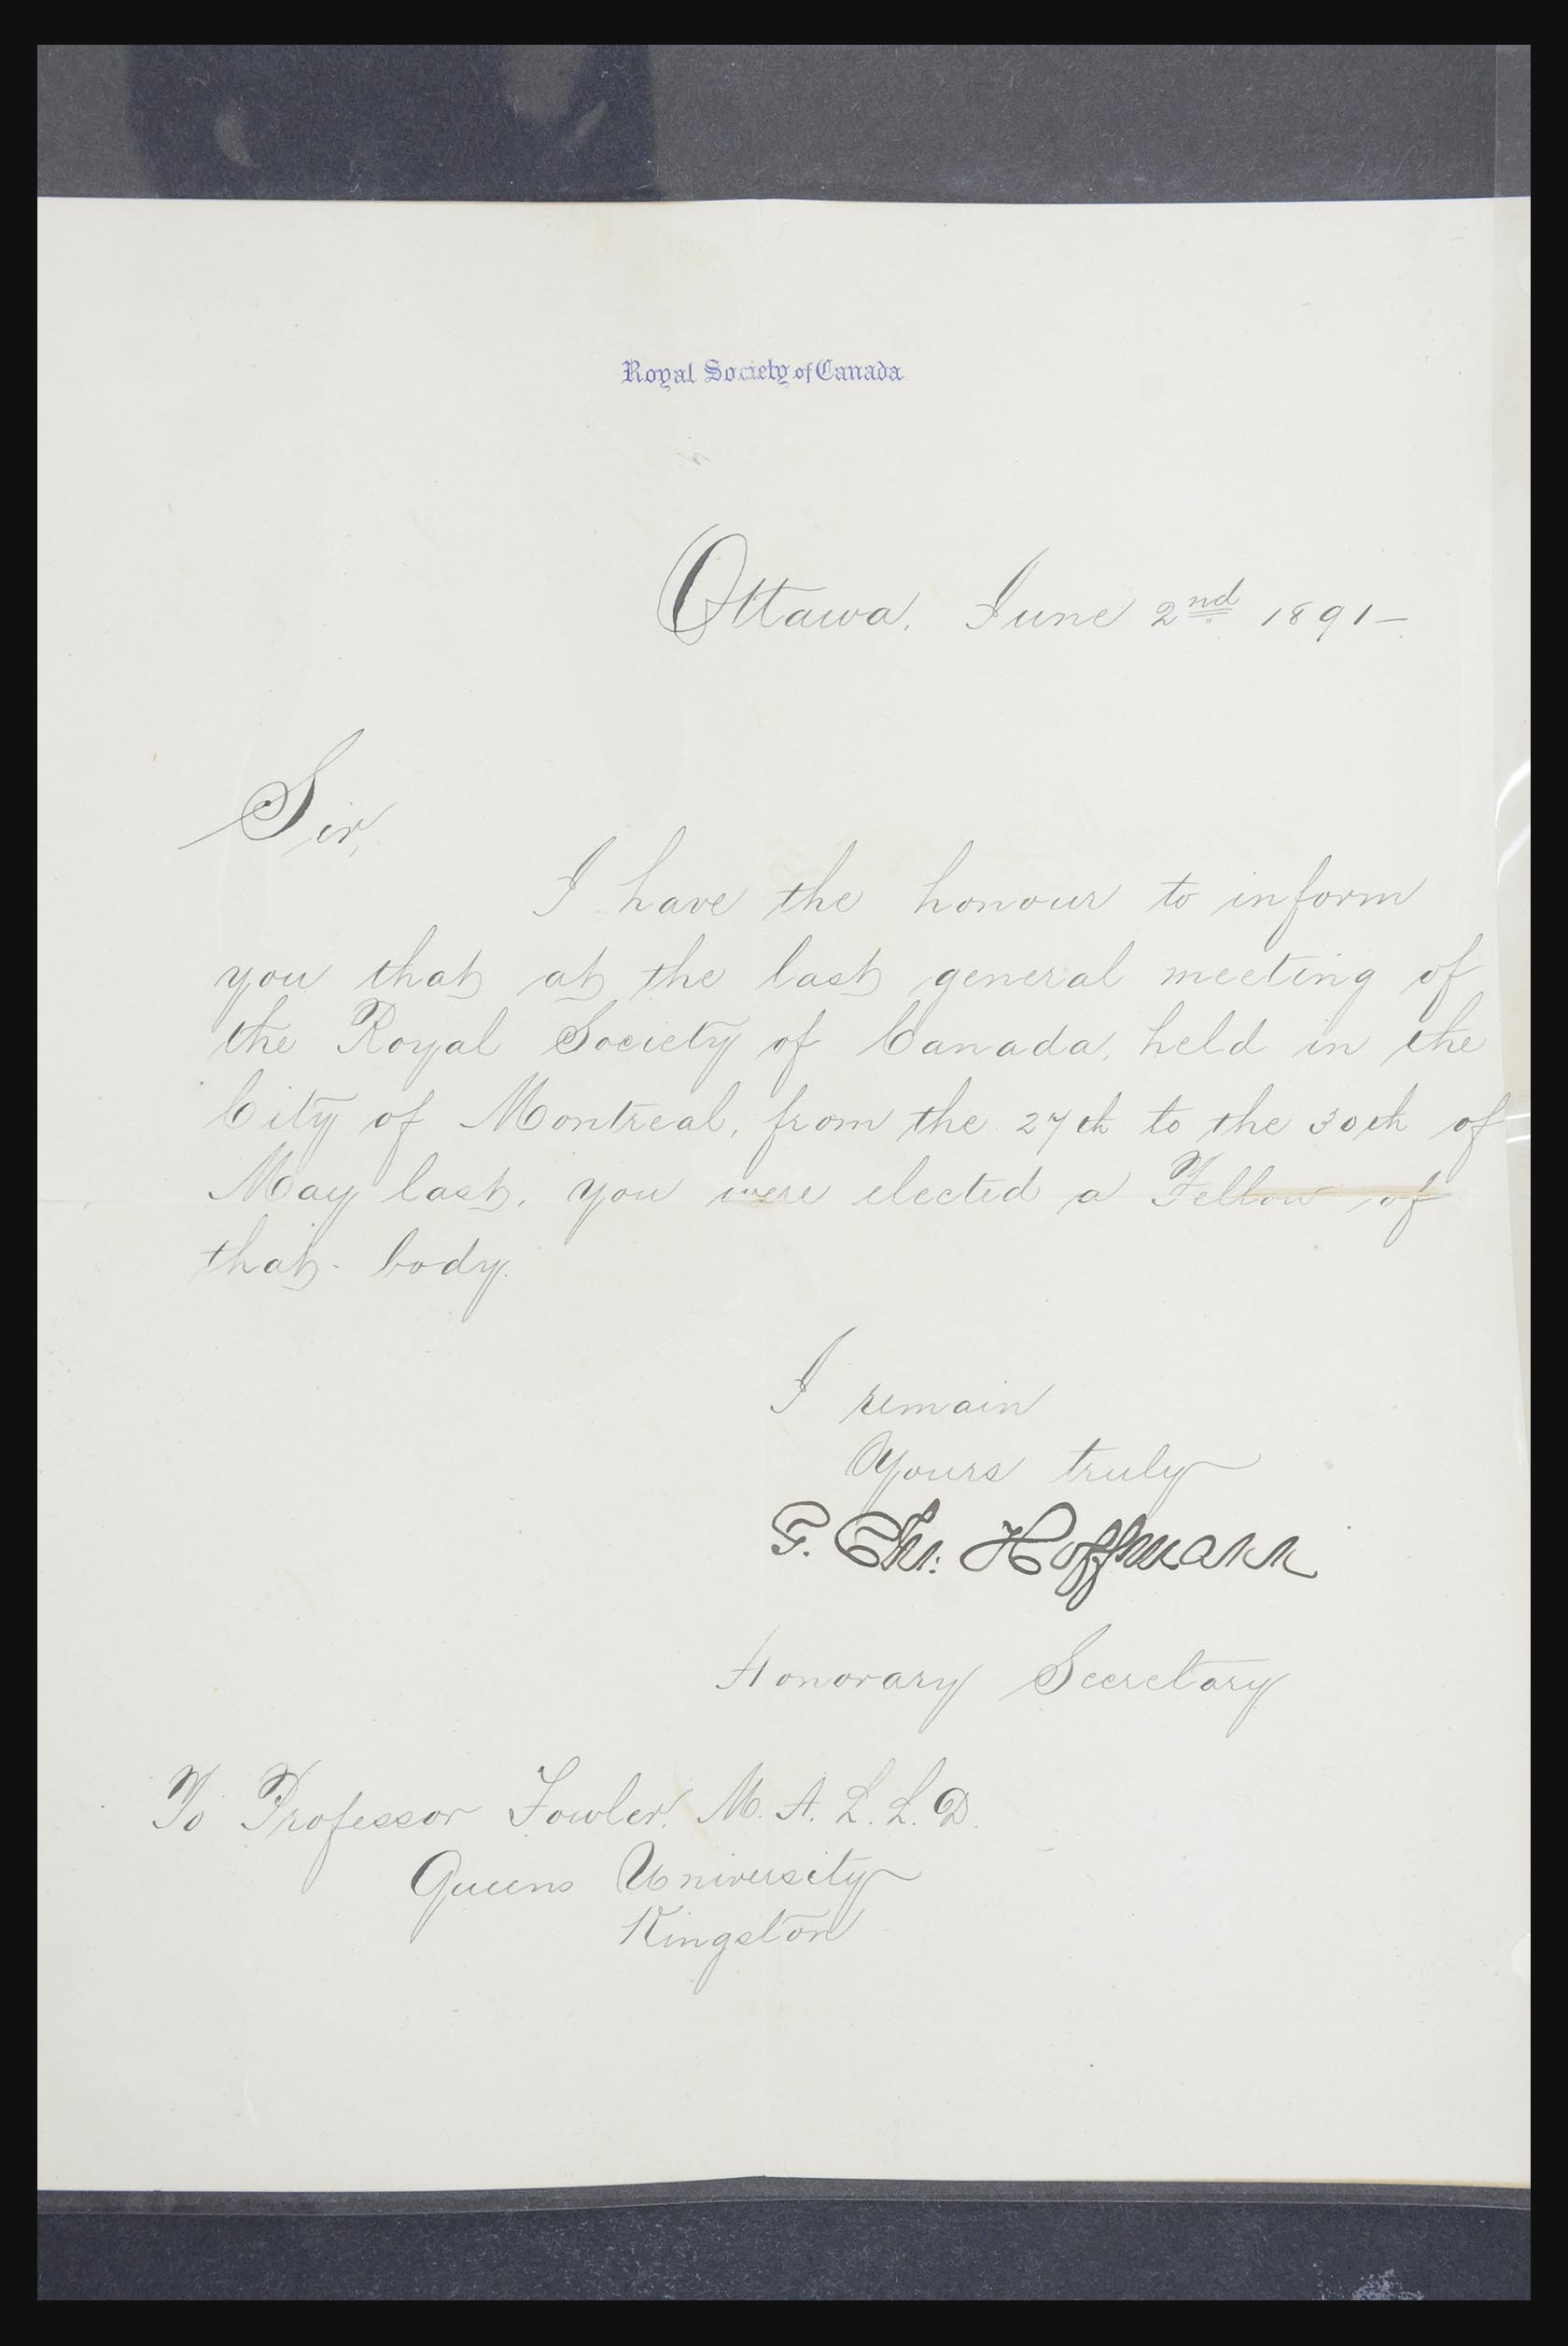 Royal Society of Canada
Ottawa, June 2nd 1891—
Sir,
I have the honour to inform
you that at the last general meeting of
the Royal Society of Canada, held in the
City of Montreal, from the 27th to the 30th of
May last, you were elected a Fellow of
that body.
I remain
Yours truly
G. Chr. Hoffmann
Honorary Secretary
To Professor Fowler. M. A. L. L. D.
Queens University
Kingston